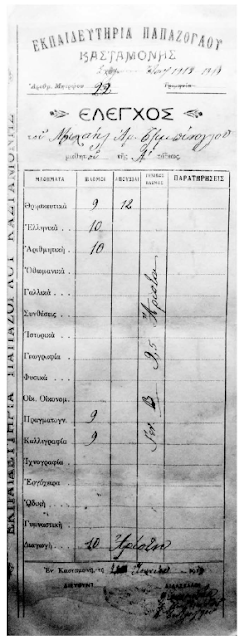 ΕΚΠΑΙΔΕΥΤΗΡΙΑ ΠΑΠΑΖΟΓΛΟΥ
ΚΑΣΤΑΜΟΝΗΣ
Ἀριθμ. Μητρῴου 99
ΕΛΕΓΧΟΣ
τῆς Α' τάξεως
ΜΑΘΗΜΑΤΑ ΒΑΘΜΟΙ ΑΠΟΥΣΙΑΙ ΓΕΝΙΚΟΣ ΒΑΘΜΟΣ ΠΑΡΑΤΗΡΗΣΕΙΣ
Θρησκευτικά 9 12
Ἑλληνικά . . 10
Ἀριθμητική . 10
Ὀθωμανικά .
Γαλλικά . . .
Συνθέσεις . .
Ἱστορικά . .
Γεωγραφία .
Φυσικά . . .
Οἰκ. Οἰκονομ.
Πραγματογν. 9
Καλλιγραφία 9
Ἰχνογραφία .
Ἐργόχειρα .
Ὠδική . . .
Γυμναστική .
Διαγωγή . . 10 Ἀρίστη
Γεν. Β. 9,5 Ἄριστα
Ἐν Κασταμονῇ, τῇ
ΕΚΠΑΙΔΕΥΤΗΡΙΑ ΠΑΠΑΖΟΓΛΟΥ ΚΑΣΤΑΜΟΝΗΣ